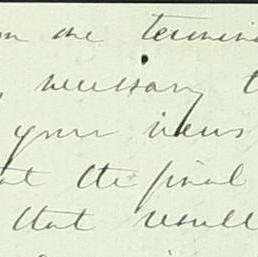 the termin
necessary t
your views
at the final
that would